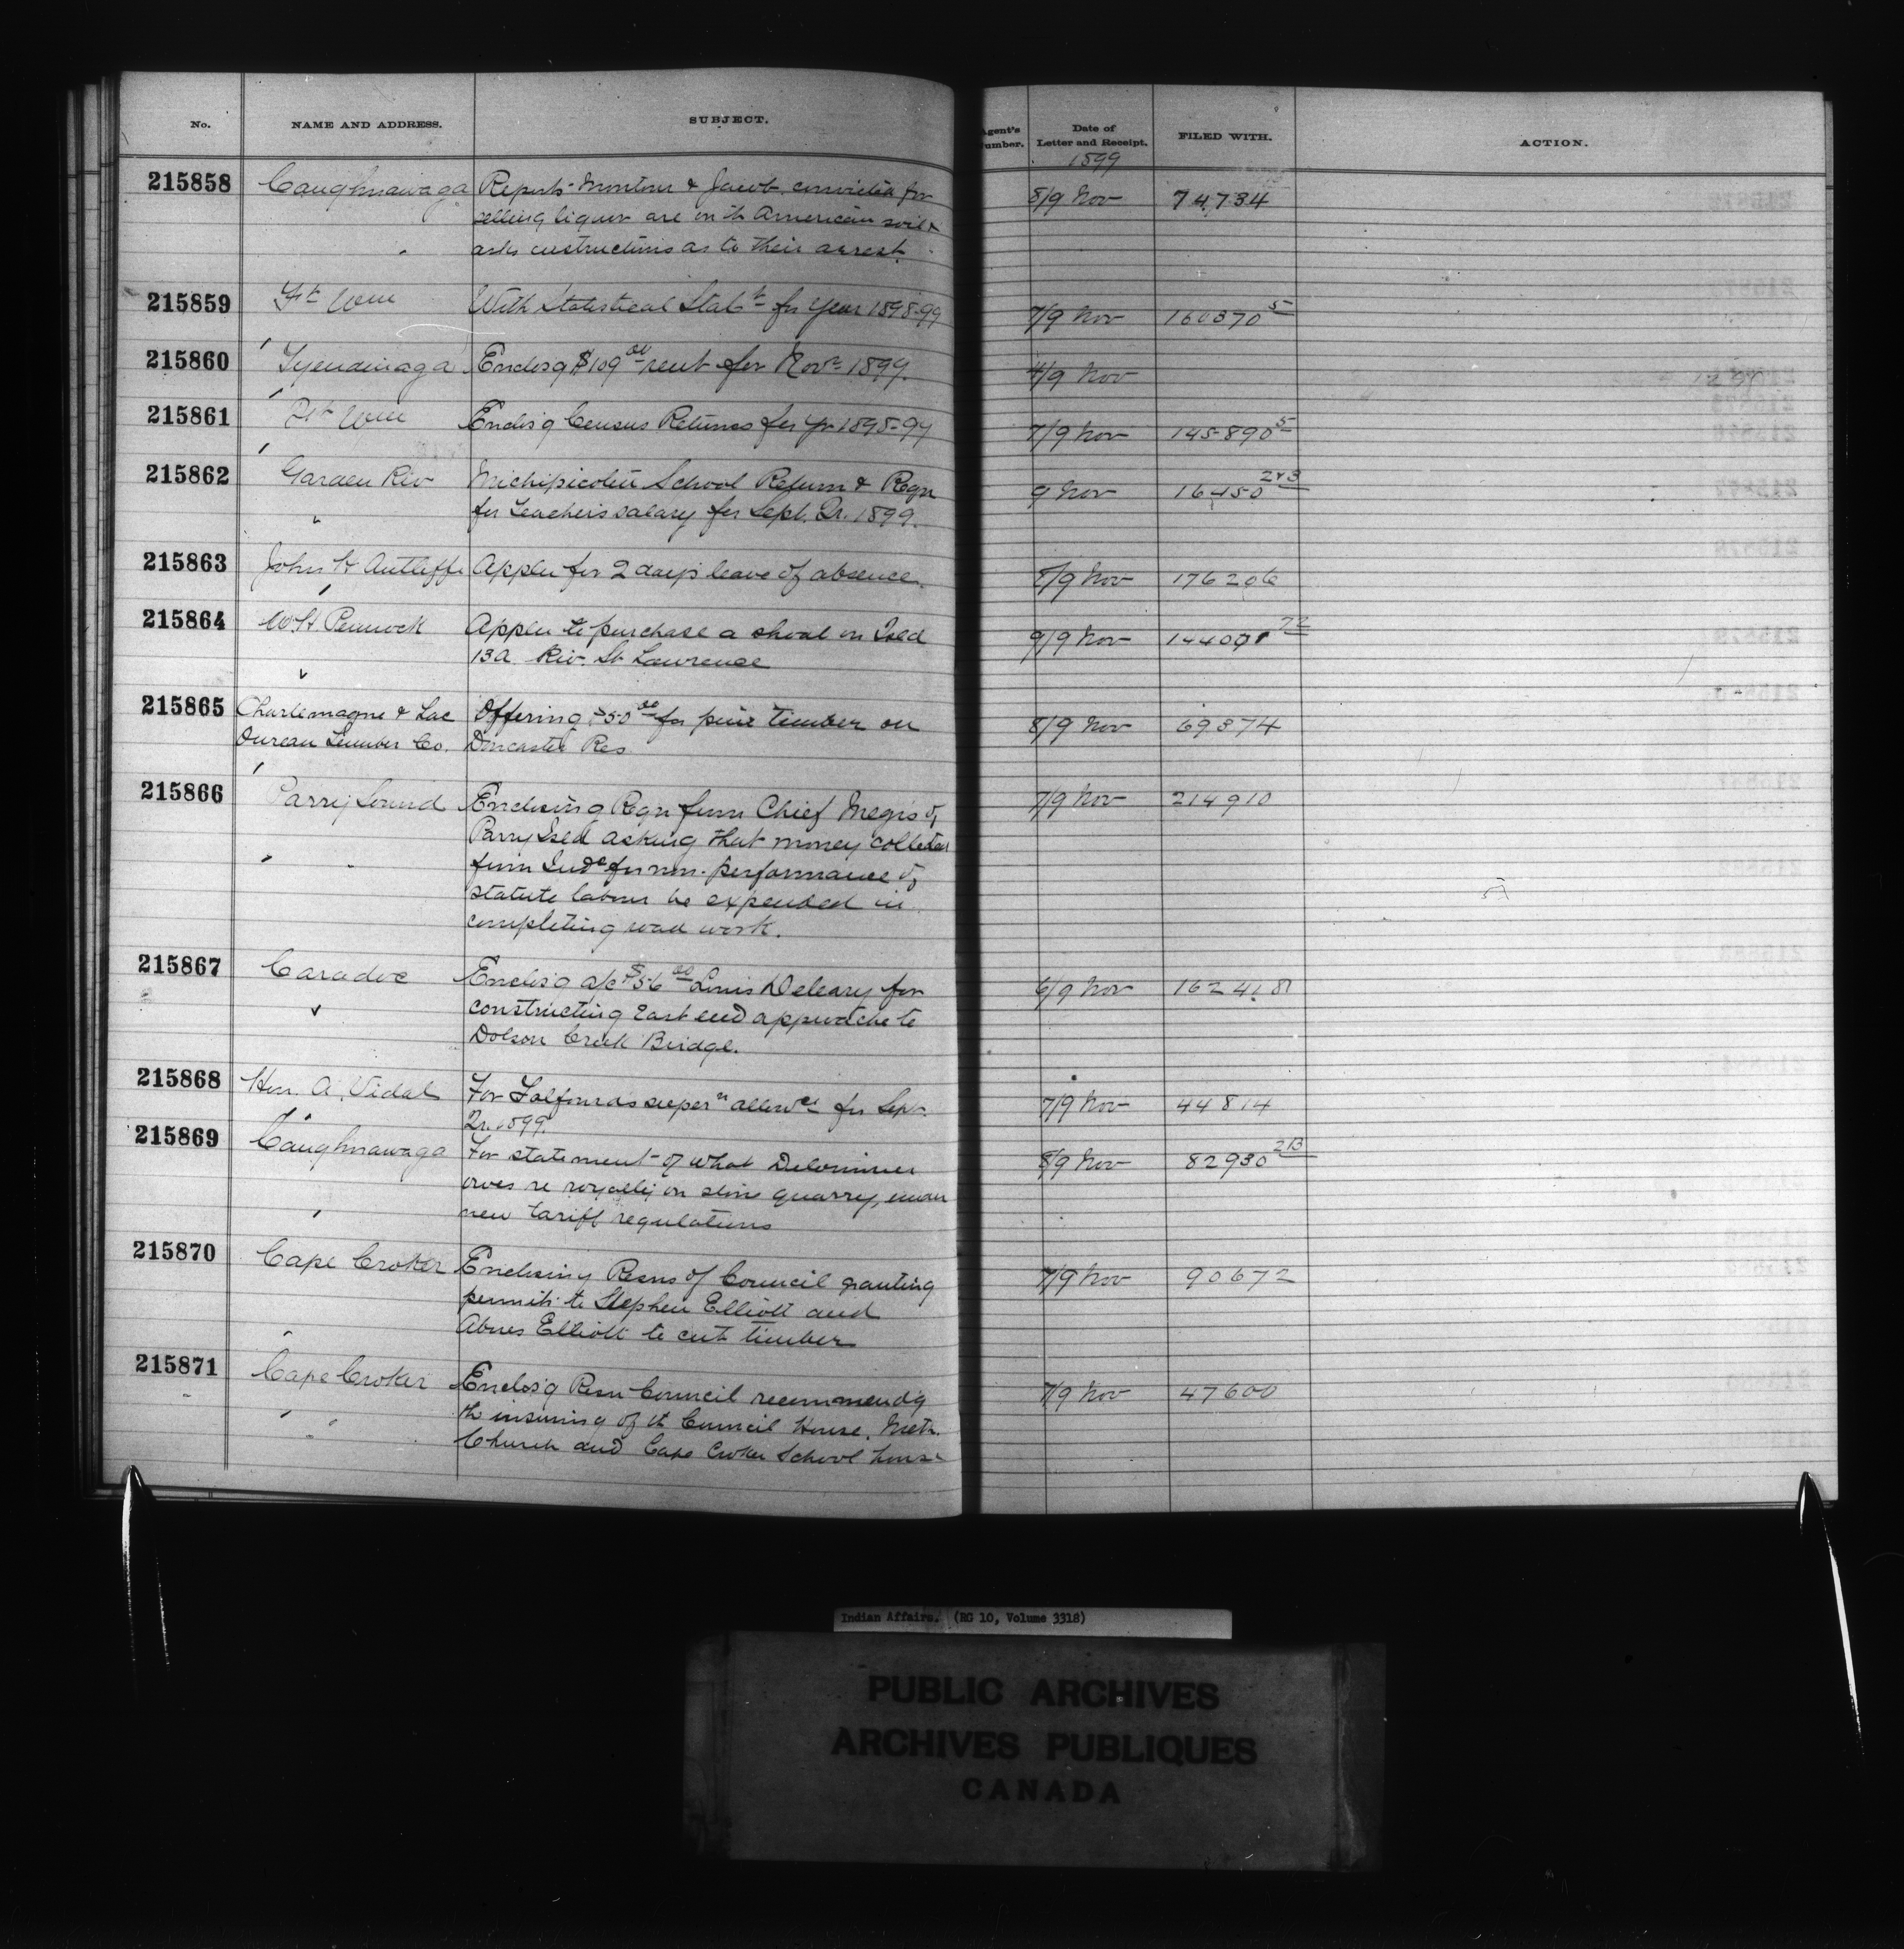 No. NAME AND ADDRESS. SUBJECT. Agent's Number. Date of Letter and Receipt. FILED WITH. ACTION.
1899
215858 Caughnawaga Reports Montour & Jacob convicted for 8/9 Nov 74734
selling liquor are on the American soil &
asks instructions as to their arrest.
215859 Ft Wm With Statistical Statt for Year 1898-99 7/9 Nov 160370 5
215860 Tyendinaga Enclosg $109 00 rent for Novr 1899. 4/9 Nov
215861 Ft Wm Enclos'g Census Returns for yr 1898-99 7/9 Nov 145890 5
215862 Garden Riv Michipicoten School Return & Reqn 9 Nov 16450 2&3
for Teacher's salary for Sept. Qr. 1899.
215863 John H Autliffe Appln for 2 days leave of absence. 8/9 Nov 176206
215864 W. H. Pennock Appln to purchase a shoal on Isld 9/9 Nov 144001 72
13A Riv. St Lawrence
215865 Charlemagne & Lac Offering $50 00 for pine timber on 8/9 Nov 69374
Oureau Lumber Co. Doncaster Res
215866 Parry Sound Enclosing Reqn from Chief Megis of 7/9 Nov 214910
Parry Isld asking that money collected
from Inds for non-performance of
statute labour be expended in
completing road work.
215867 Caradoc Enclos'g a/c $56 00 Louis Deleary for 6/9 Nov 162418
constructing East end approache to
Dolson Creek Bridge.
215868 Hon. A. Vidal For Salfourds supern allowce for Sep. 7/9 Nov 44814
Qr. 1899.
215869 Caughnawaga For statement of what Delorimier 8/9 Nov 82930 213
owes re royalty on stone quarry, under
new tariff regulations
215870 Cape Croker Enclosing Resns of Council granting 7/9 Nov 90672
permits to Stephen Elliott and
Abner Elliott to cut timber
215871 Cape Croker Enclos'g Resn Council recommend'g 7/9 Nov 47600
the insuring of the Council House, Meth.
Church and Cape Croker School house
Indian Affairs. (RG 10, Volume 3318)
PUBLIC ARCHIVES
ARCHIVES PUBLIQUES
CANADA